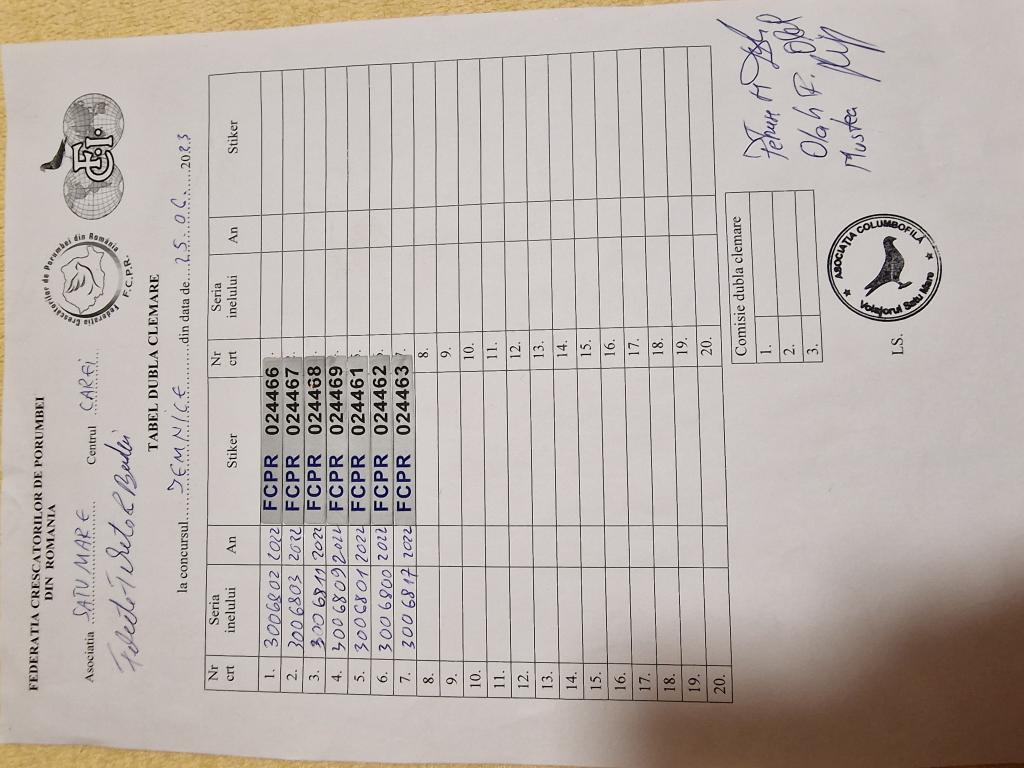 FEDERATIA CRESCATORILOR DE PORUMBEI
DIN ROMANIA
Federatia Crescătorilor de Porumbei din România
F.C.P.R.
FCI
Asociatia SATU MARE Centrul CAREI
TABEL DUBLA CLEMARE
la concursul JEMNICE din data de 25.06. 2023
Nr crt Seria inelului An Stiker Nr crt Seria inelului An Stiker
1. 3006802 2022 FCPR 024466
2. 3006803 2022 FCPR 024467
3. 3006811 2022 FCPR 024468
4. 3006809 2022 FCPR 024469
5. 3006801 2022 FCPR 024461
6. 3006800 2022 FCPR 024462
7. 3006817 2022 FCPR 024463
8. 8.
9. 9.
10. 10.
11. 11.
12. 12.
13. 13.
14. 14.
15. 15.
16. 16.
17. 17.
18. 18.
19. 19.
20. 20.
Comisie dubla clemare
1.
2.
3.
Olah F.
Mustea
LS.
ASOCIAȚIA COLUMBOFILĂ
Voiajorul Satu Mare